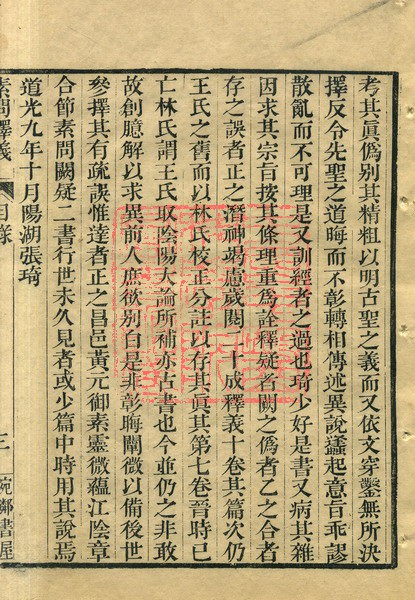 考其眞僞别其精粗以明古聖之義而又依文穿鑿無所決
擇反令先聖之道晦而不彰轉相傳述異說蠭起意旨乖謬
散亂而不可理是又訓經者之過也琦少好是書又病其雜
因求其宗旨按其條理重爲詮釋疑者闕之僞者乙之合者
存之誤者正之潛神竭慮歲閱二十成釋義十卷其篇次仍
王氏之舊而以林氏校正分註以存其眞其第七卷晉時已
亡林氏謂王氏取陰陽大論所補亦古書也今並仍之非敢
故創臆解以求異前人庶欲别白是非彰晦闡微以備後世
參擇其有疏誤惟達者正之昌邑黄元御素靈微蘊江陰章
合節素問闕疑二書行世未久見者或少篇中時用其說焉
道光九年十月陽湖張琦
素問釋義
目錄
三
宛鄰書屋